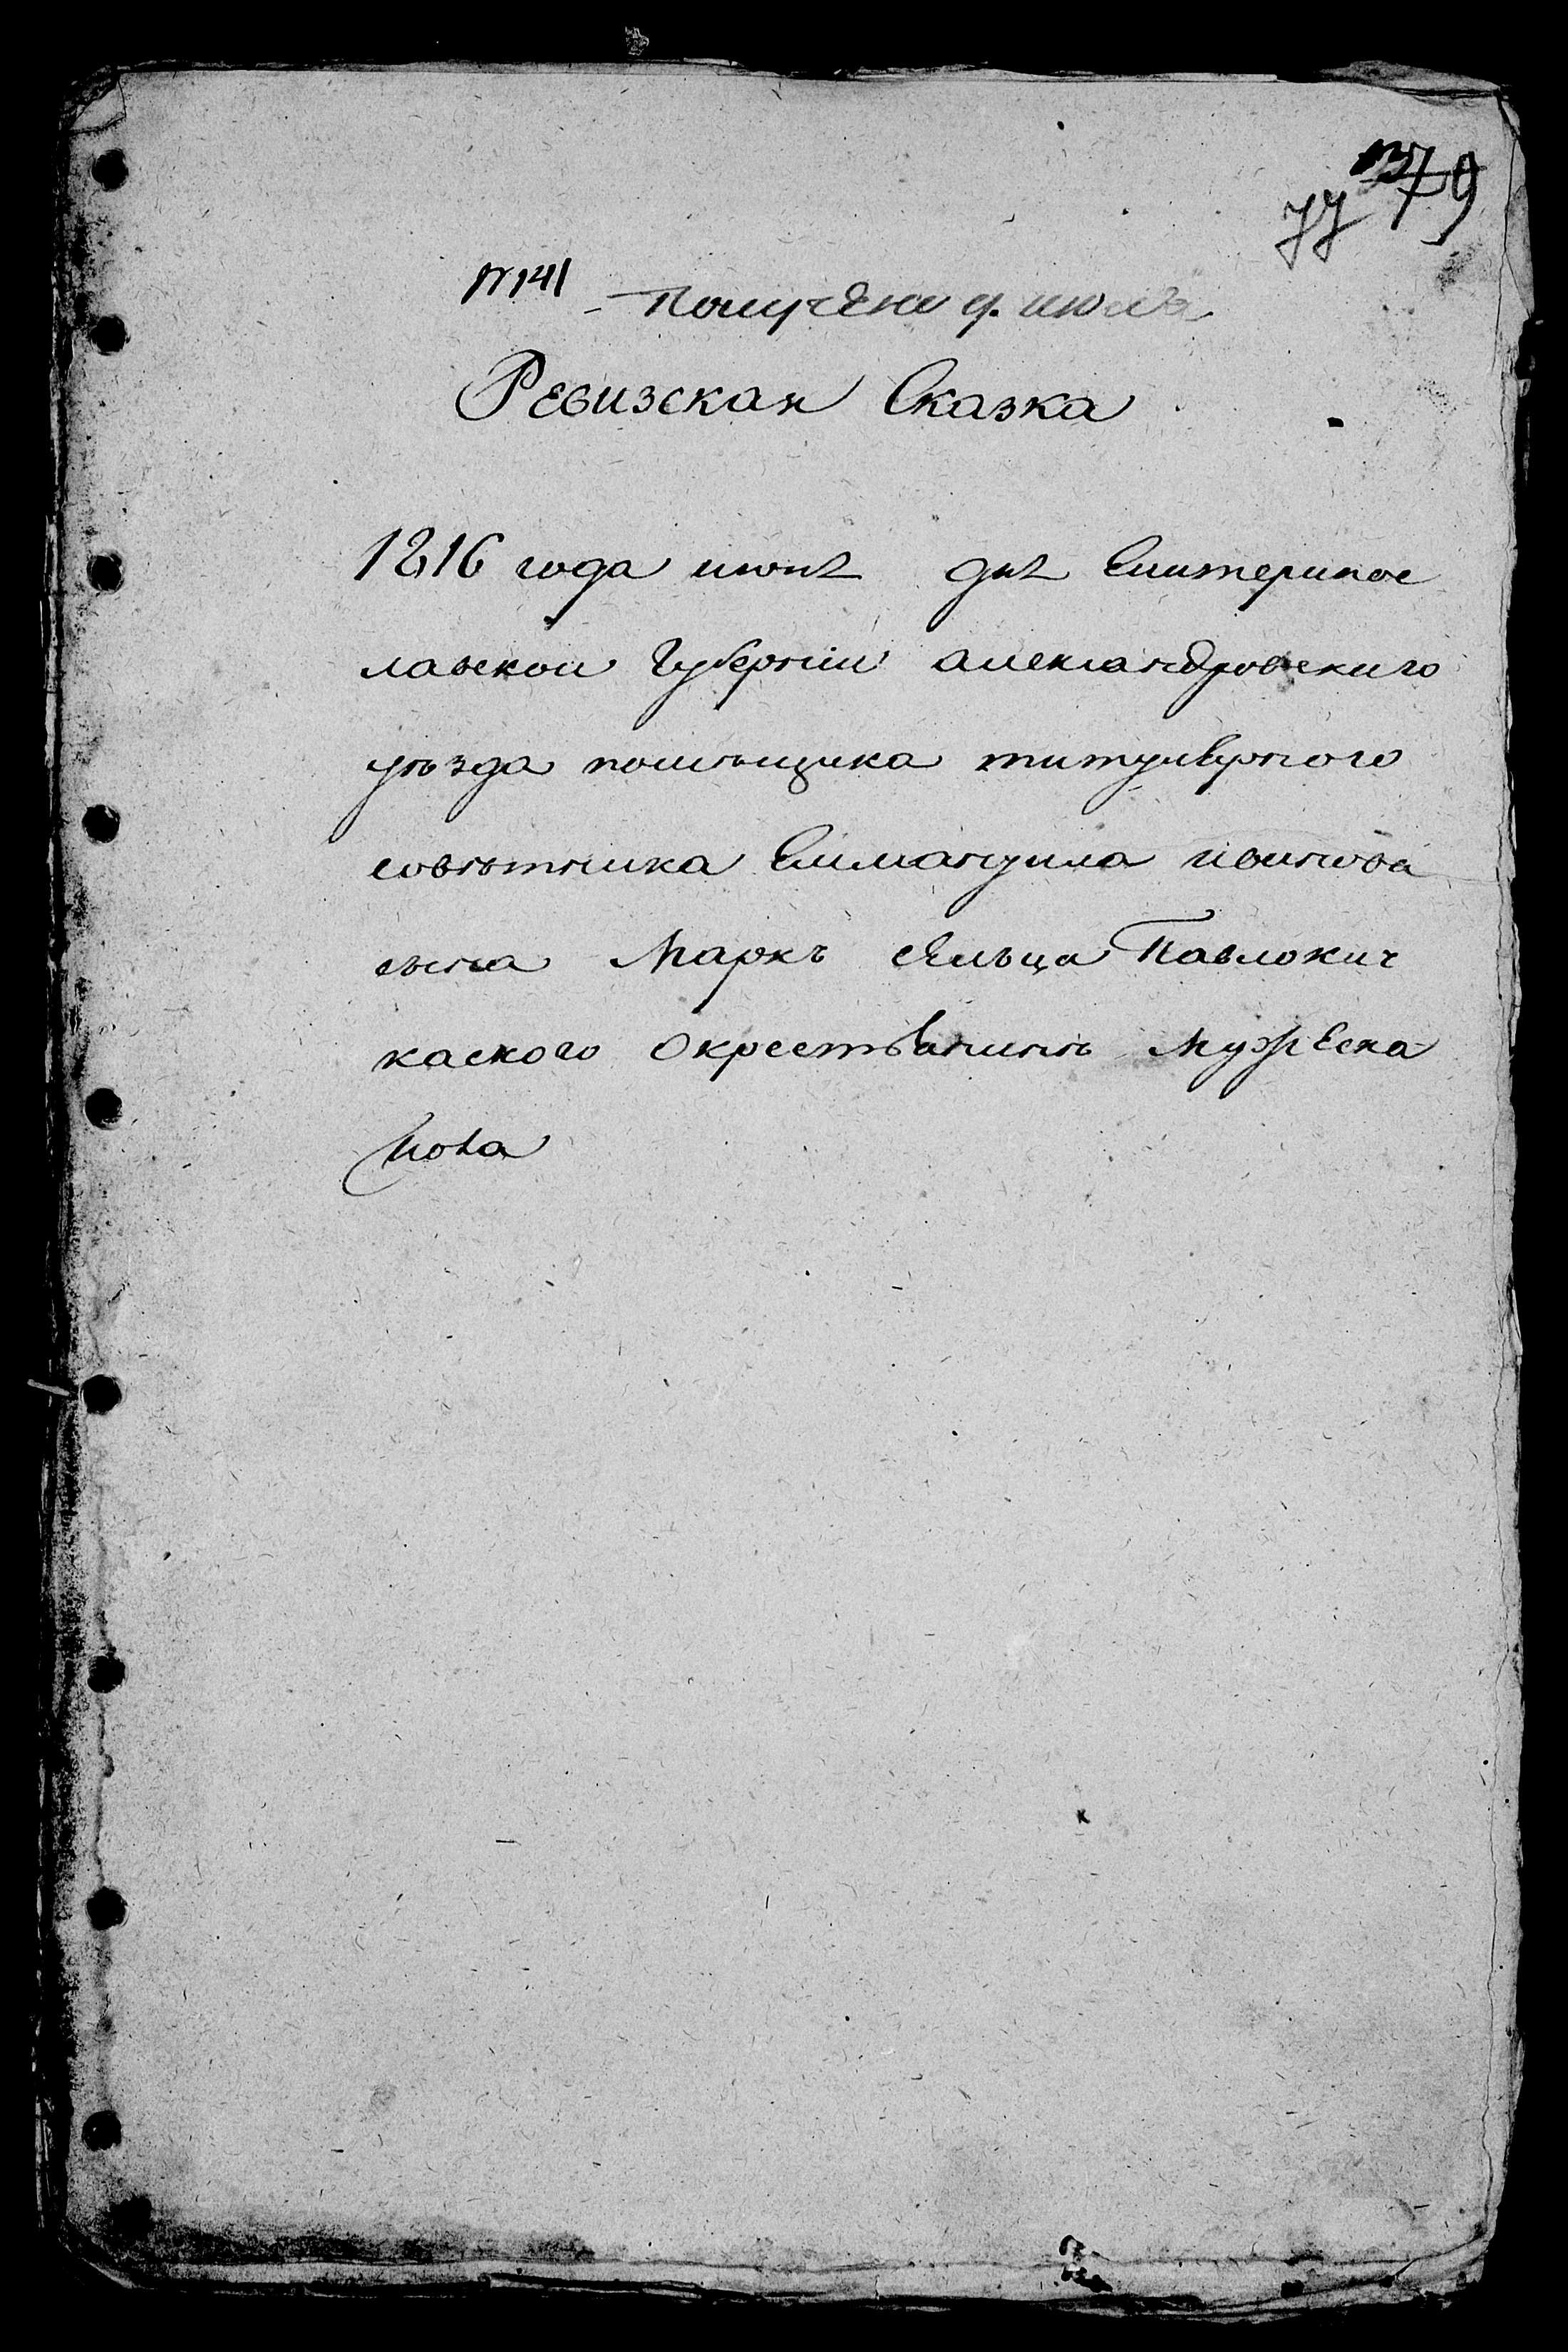 79
77
№141 Получено 9. июля
Ревизская Сказка
1816 года июня дня Екатеринос
лавской Губернии александровского
уѣзда помѣщика титулярного
совѣтника Еммануила иванова
сына Маркъ Павлокич
каского окрестьянинѣ Мужеска
пола